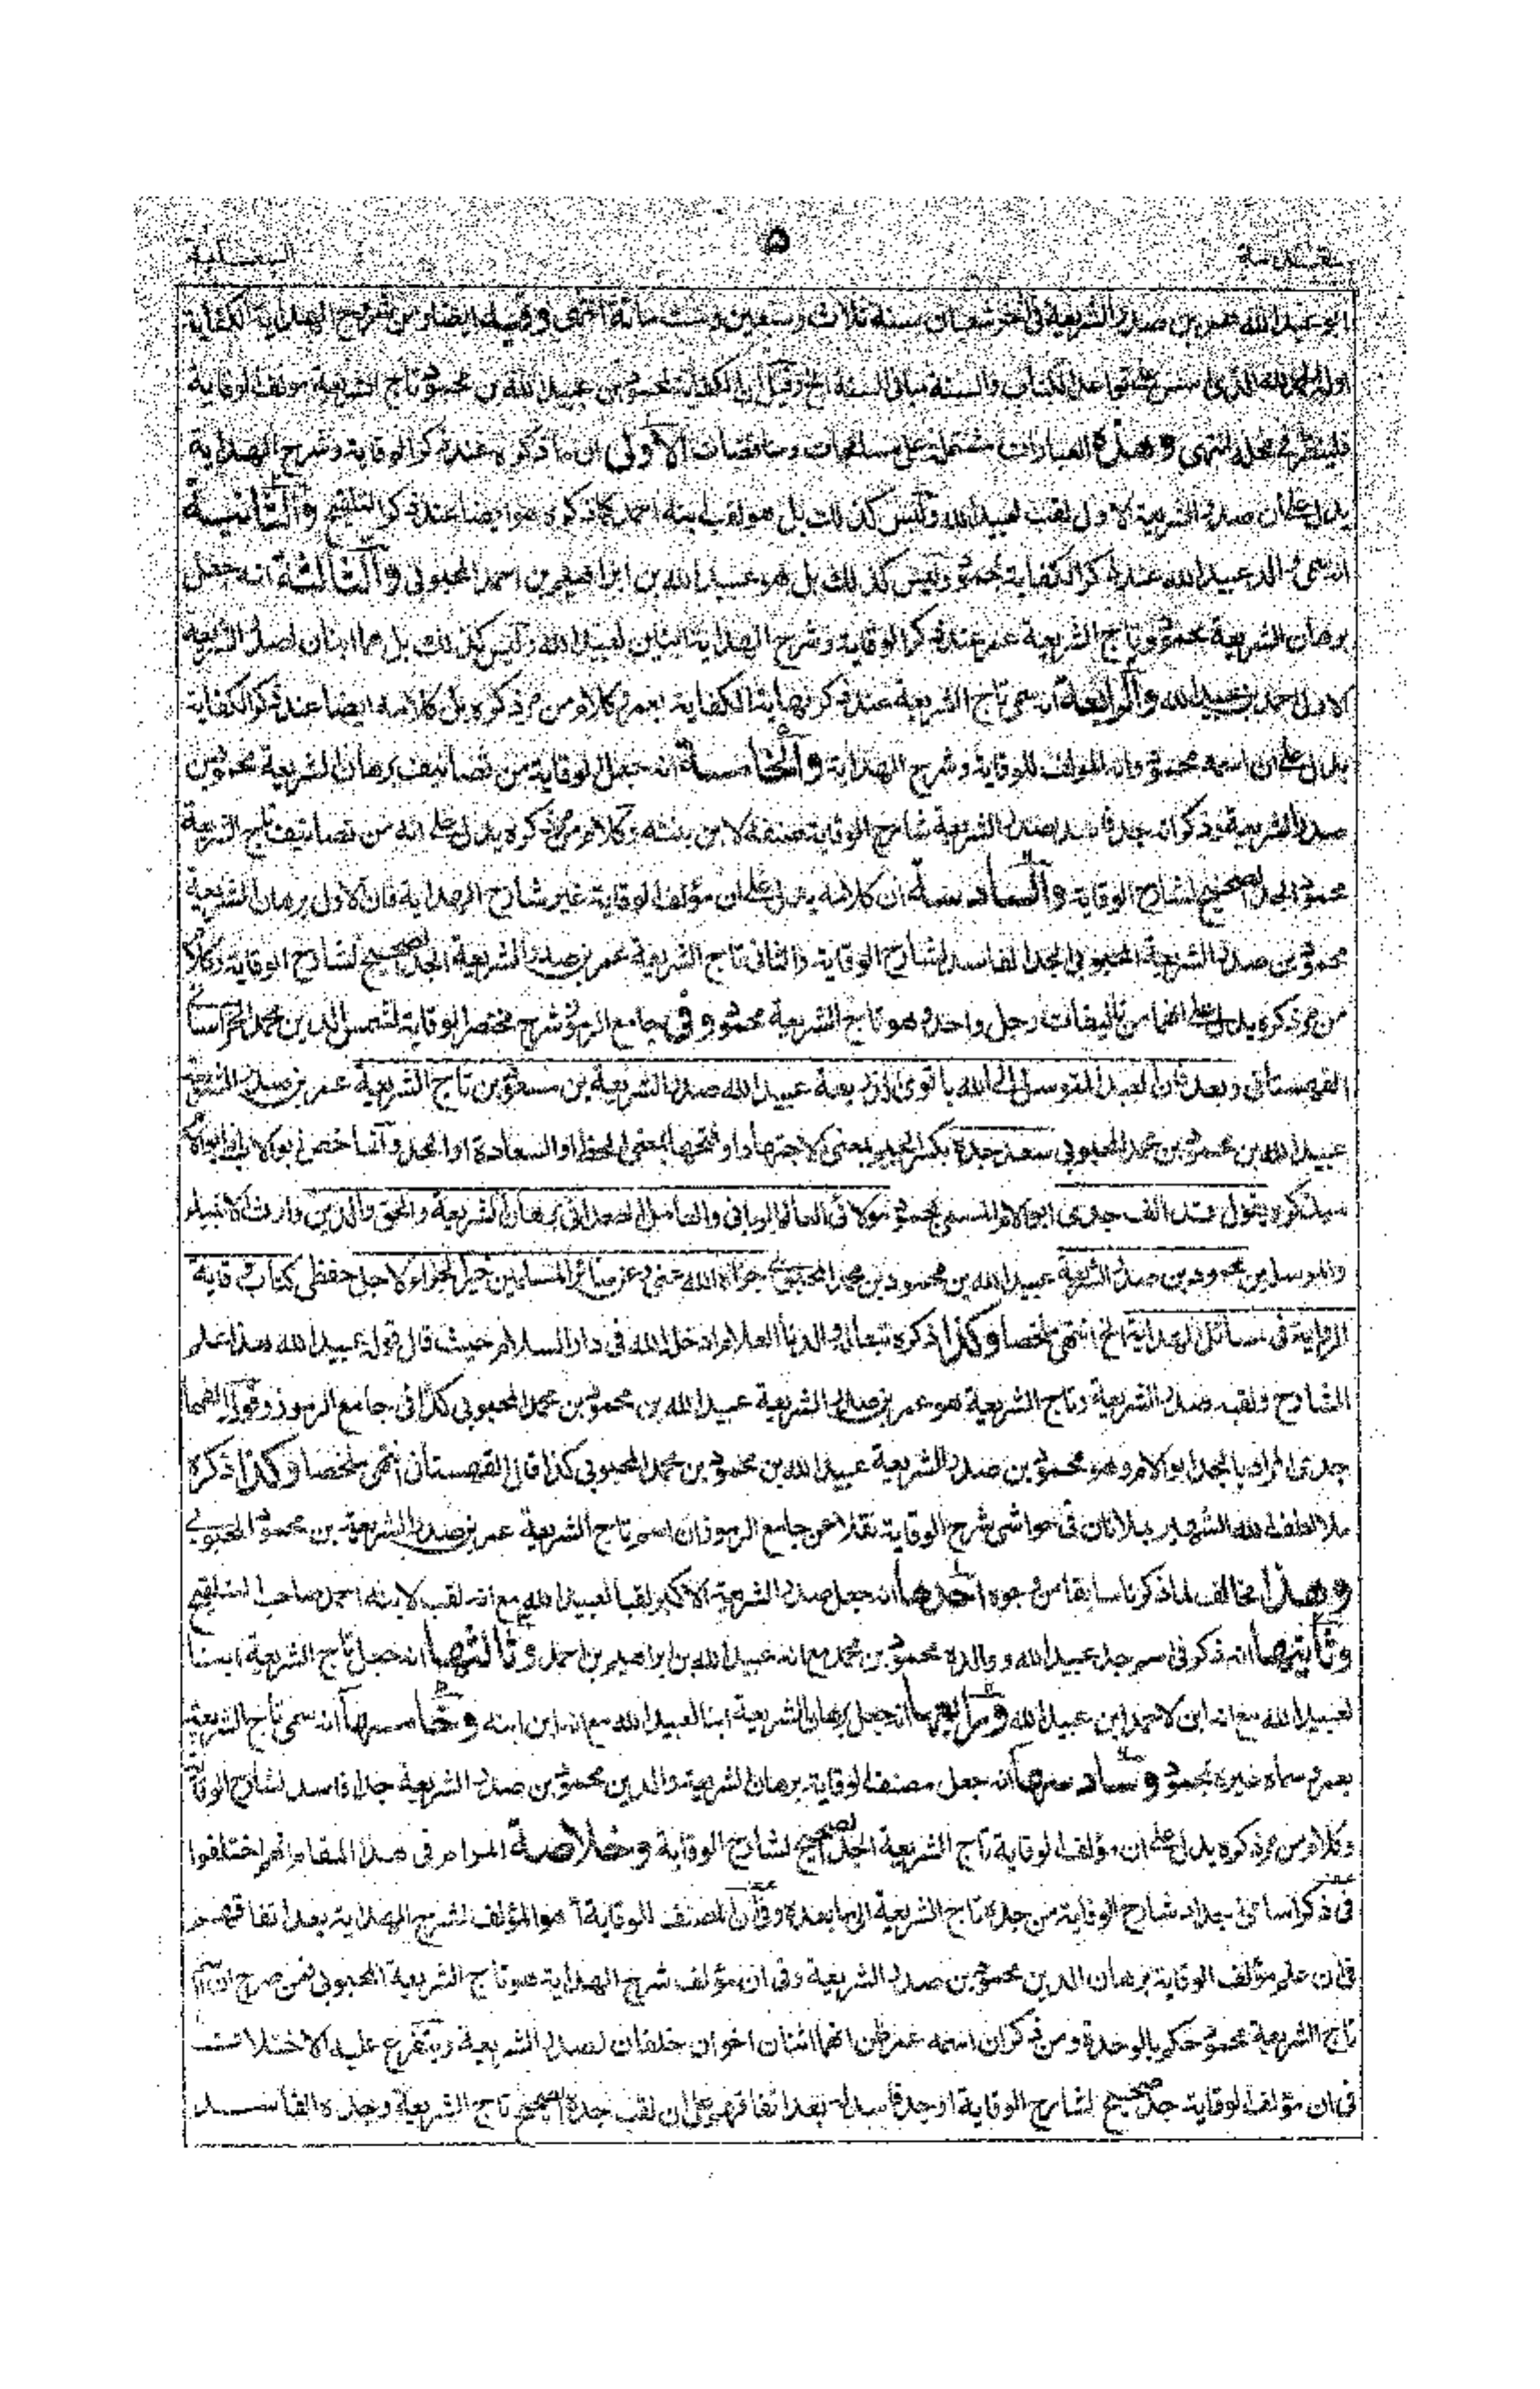 مقدمة ٥ السعاية
ابو عبد الله عمر بن صدر الشريعة فى آخر شعبان سنة ثلاث وسبعين وست مائة انتهى وفيه ايضا ومن شروح الهداية الكفاية
اوله الحمد لله الذى اسس قواعد الكتاب والسنة مبانى السنة الخ وقيل ان الكفاية لمحمود بن عبيد الله بن محمود تاج الشريعة مؤلف الوقاية
فلينظر فى محله انتهى وهذه العبارات مشتملة على مسامحات ومناقضات الاولى ان ما ذكره عند ذكر الوقاية وشرح الهداية
يدل على ان صدر الشريعة الاول لقب لعبيد الله وليس كذلك بل هو لقب ابنه احمد كما ذكره هو ايضا عند ذكر التلقيح والثانية
انه سمى والد عبيد الله عند ذكر الكفاية بمحمود وليس كذلك بل هو عبيد الله بن ابراهيم بن احمد المحبوبى والثالثة انه جعل
برهان الشريعة محمود وتاج الشريعة عمر عند ذكر الوقاية وشرح الهداية ابنين لعبيد الله وليس كذلك بل هما ابنان لصدر الشريعة
الاول احمد بن عبيد الله والرابعة انه سمى تاج الشريعة عند ذكر نهاية الكفاية بعمر وكلام من مر ذكره بل كلامه ايضا عند ذكر الكفاية
يدل على ان اسمه محمود وانه المؤلف للوقاية وشرح الهداية والخامسة انه جعل الوقاية من تصانيف برهان الشريعة محمود بن
صدر الشريعة وذكر انه جد فاسد لصدر الشريعة شارح الوقاية صنفه لابن بنته وكلام من مر ذكره يدل على انه من تصانيف تاج الشريعة
محمود الجد الصحيح لشارح الوقاية والسادسة ان كلامه يدل على ان مؤلف الوقاية غير شارح الهداية فان الاول برهان الشريعة
محمود بن صدر الشريعة المحبوبى الجد الفاسد لشارح الوقاية والثانى تاج الشريعة عمر بن صدر الشريعة الجد الصحيح لشارح الوقاية وكلام
من مر ذكره يدل على انهما من تاليفات رجل واحد وهو تاج الشريعة محمود وفى جامع الرموز شرح مختصر الوقاية لشمس الدين محمد الخراسانى
القهستانى وبعد فان العبد المتوسل الى الله باقوى الذريعة عبيد الله صدر الشريعة بن مسعود بن تاج الشريعة عمر بن صدر الشريعة
عبيد الله بن محمود بن محمد المحبوبى سعد جده بكسر الجيم بمعنى الاجتهاد او فتحها بمعنى الحظ او السعادة او الجد وانما خص ابو الاب او ابو الام
سيذكره يقول قد الف جدى ابو الام المسمى بمحمود مولائى العالم الربانى والعامل الصمدانى برهان الشريعة والحق والدين وارث الانبياء
والمرسلين محمود بن صدر الشريعة عبيد الله بن محمود بن محمد المحبوبى جزاه الله عنى وعن سائر المسلمين خير الجزاء لاجل حفظى كتاب وقاية
الرواية فى مسائل الهداية الخ انتهى ملخصا وكذا ذكره تبعا له والدنا العلام ادخله الله فى دار السلام حيث قال قوله عبيد الله هذا علم
الشارح ولقبه صدر الشريعة وتاج الشريعة هو عمر بن صدر الشريعة عبيد الله بن محمود بن محمد المحبوبى كذا فى جامع الرموز وقوله ايضا
جدى المراد بالجد ابو الام وهو محمود بن صدر الشريعة عبيد الله بن محمود بن محمد المحبوبى كذا قال القهستانى انتهى ملخصا وكذا ذكره
ملا لطف الله الشهير بملا نان فى حواشى شرح الوقاية نقلا عن جامع الرموز ان اسم تاج الشريعة عمر بن صدر الشريعة بن محمود المحبوبى
وهذا مخالف لما ذكرنا سابقا من وجوه احدها انه جعل صدر الشريعة الاكبر لقبا لعبيد الله مع انه لقب لابنه احمد صاحب التلقيح
وثانيتها انه ذكر فى اسم جد عبيد الله ووالده محمود بن محمد مع انه عبيد الله بن ابراهيم بن احمد وثالثها انه جعل تاج الشريعة ابنا
لعبيد الله مع انه ابن لاحمد ابن عبيد الله ورابعها انه جعل برهان الشريعة ابنا لعبيد الله مع انه ابن ابنه وخامسها انه سمى تاج الشريعة
بعمر وسماه غيره بمحمود وسادسها انه جعل مصنف الوقاية برهان الشريعة والدين محمود بن صدر الشريعة جدا فاسدا لشارح الوقاية
وكلام من مر ذكره يدل على ان مؤلف الوقاية تاج الشريعة الجد الصحيح لشارح الوقاية وخلاصة المرام فى هذا المقام انهم اختلفوا
فى ذكر اسامى اجداد شارح الوقاية من جده تاج الشريعة الى ما بعده وفى ان المصنف للوقاية أهو المؤلف لشرح الهداية بعد اتفاقهم
فى ان علم مؤلف الوقاية برهان الدين محمود بن صدر الشريعة وفى ان مؤلف شرح الهداية هو تاج الشريعة المحبوبى فمن صرح ان اسم
تاج الشريعة محمود حكم بالوحدة ومن ذكر ان اسمه عمر ظن انهما اثنان اخوان خلفان لصدر الشريعة ويتفرع عليه الاختلاف
فى ان مؤلف الوقاية جد صحيح لشارح الوقاية او جد فاسد له بعد اتفاقهم على ان لقب جده الصحيح تاج الشريعة وجده الفاسد